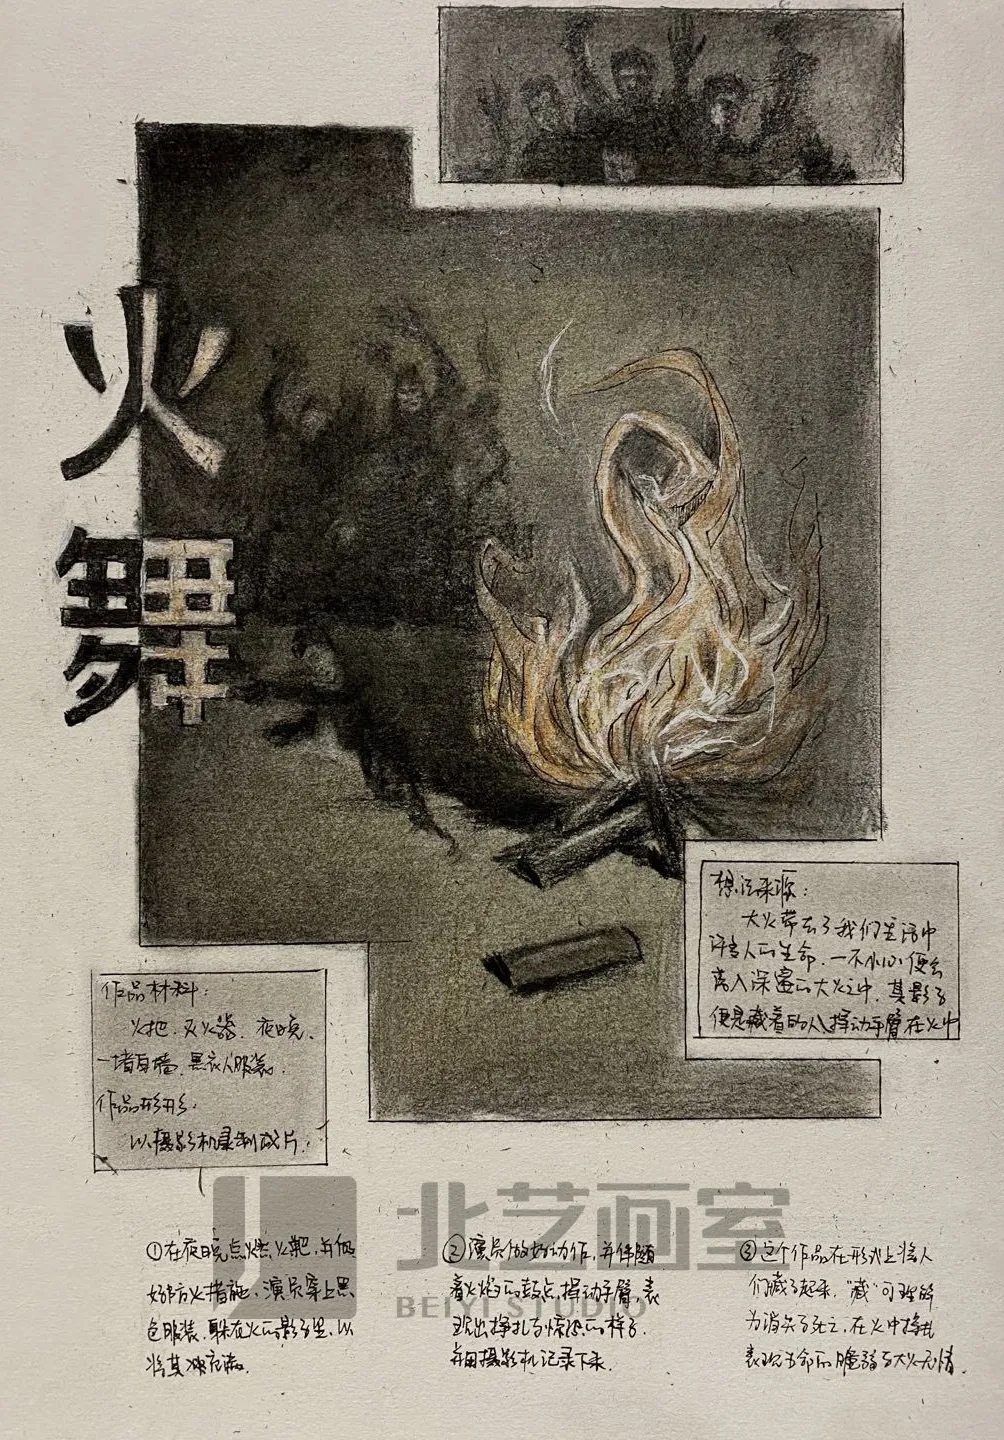 火舞
想法来源：
大火带去了我们生活中
许多人的生命，一不小心便会
落入深邃的大火之中，其影子
便是藏着的人挥动手臂在火中
作品材料：
火把、灭火器、夜晚、
一堵白墙、黑衣人服装。
作品形式：
以摄影机录制成片。
北艺画室
BEIYI STUDIO
①在夜晚点燃火靶，并做
好防火措施，演员穿上黑
色服装，躲在火的影子里，以
将其
②演员做好动作，并伴随
着火焰的鼓点，挥动手臂，表
现出挣扎与惊恐的样子，
并用摄影机记录下来。
③这个作品在形式上将人
们藏了起来，“藏”可理解
为消失了死亡，在火中挣扎
表现生命的脆弱与大火无情。